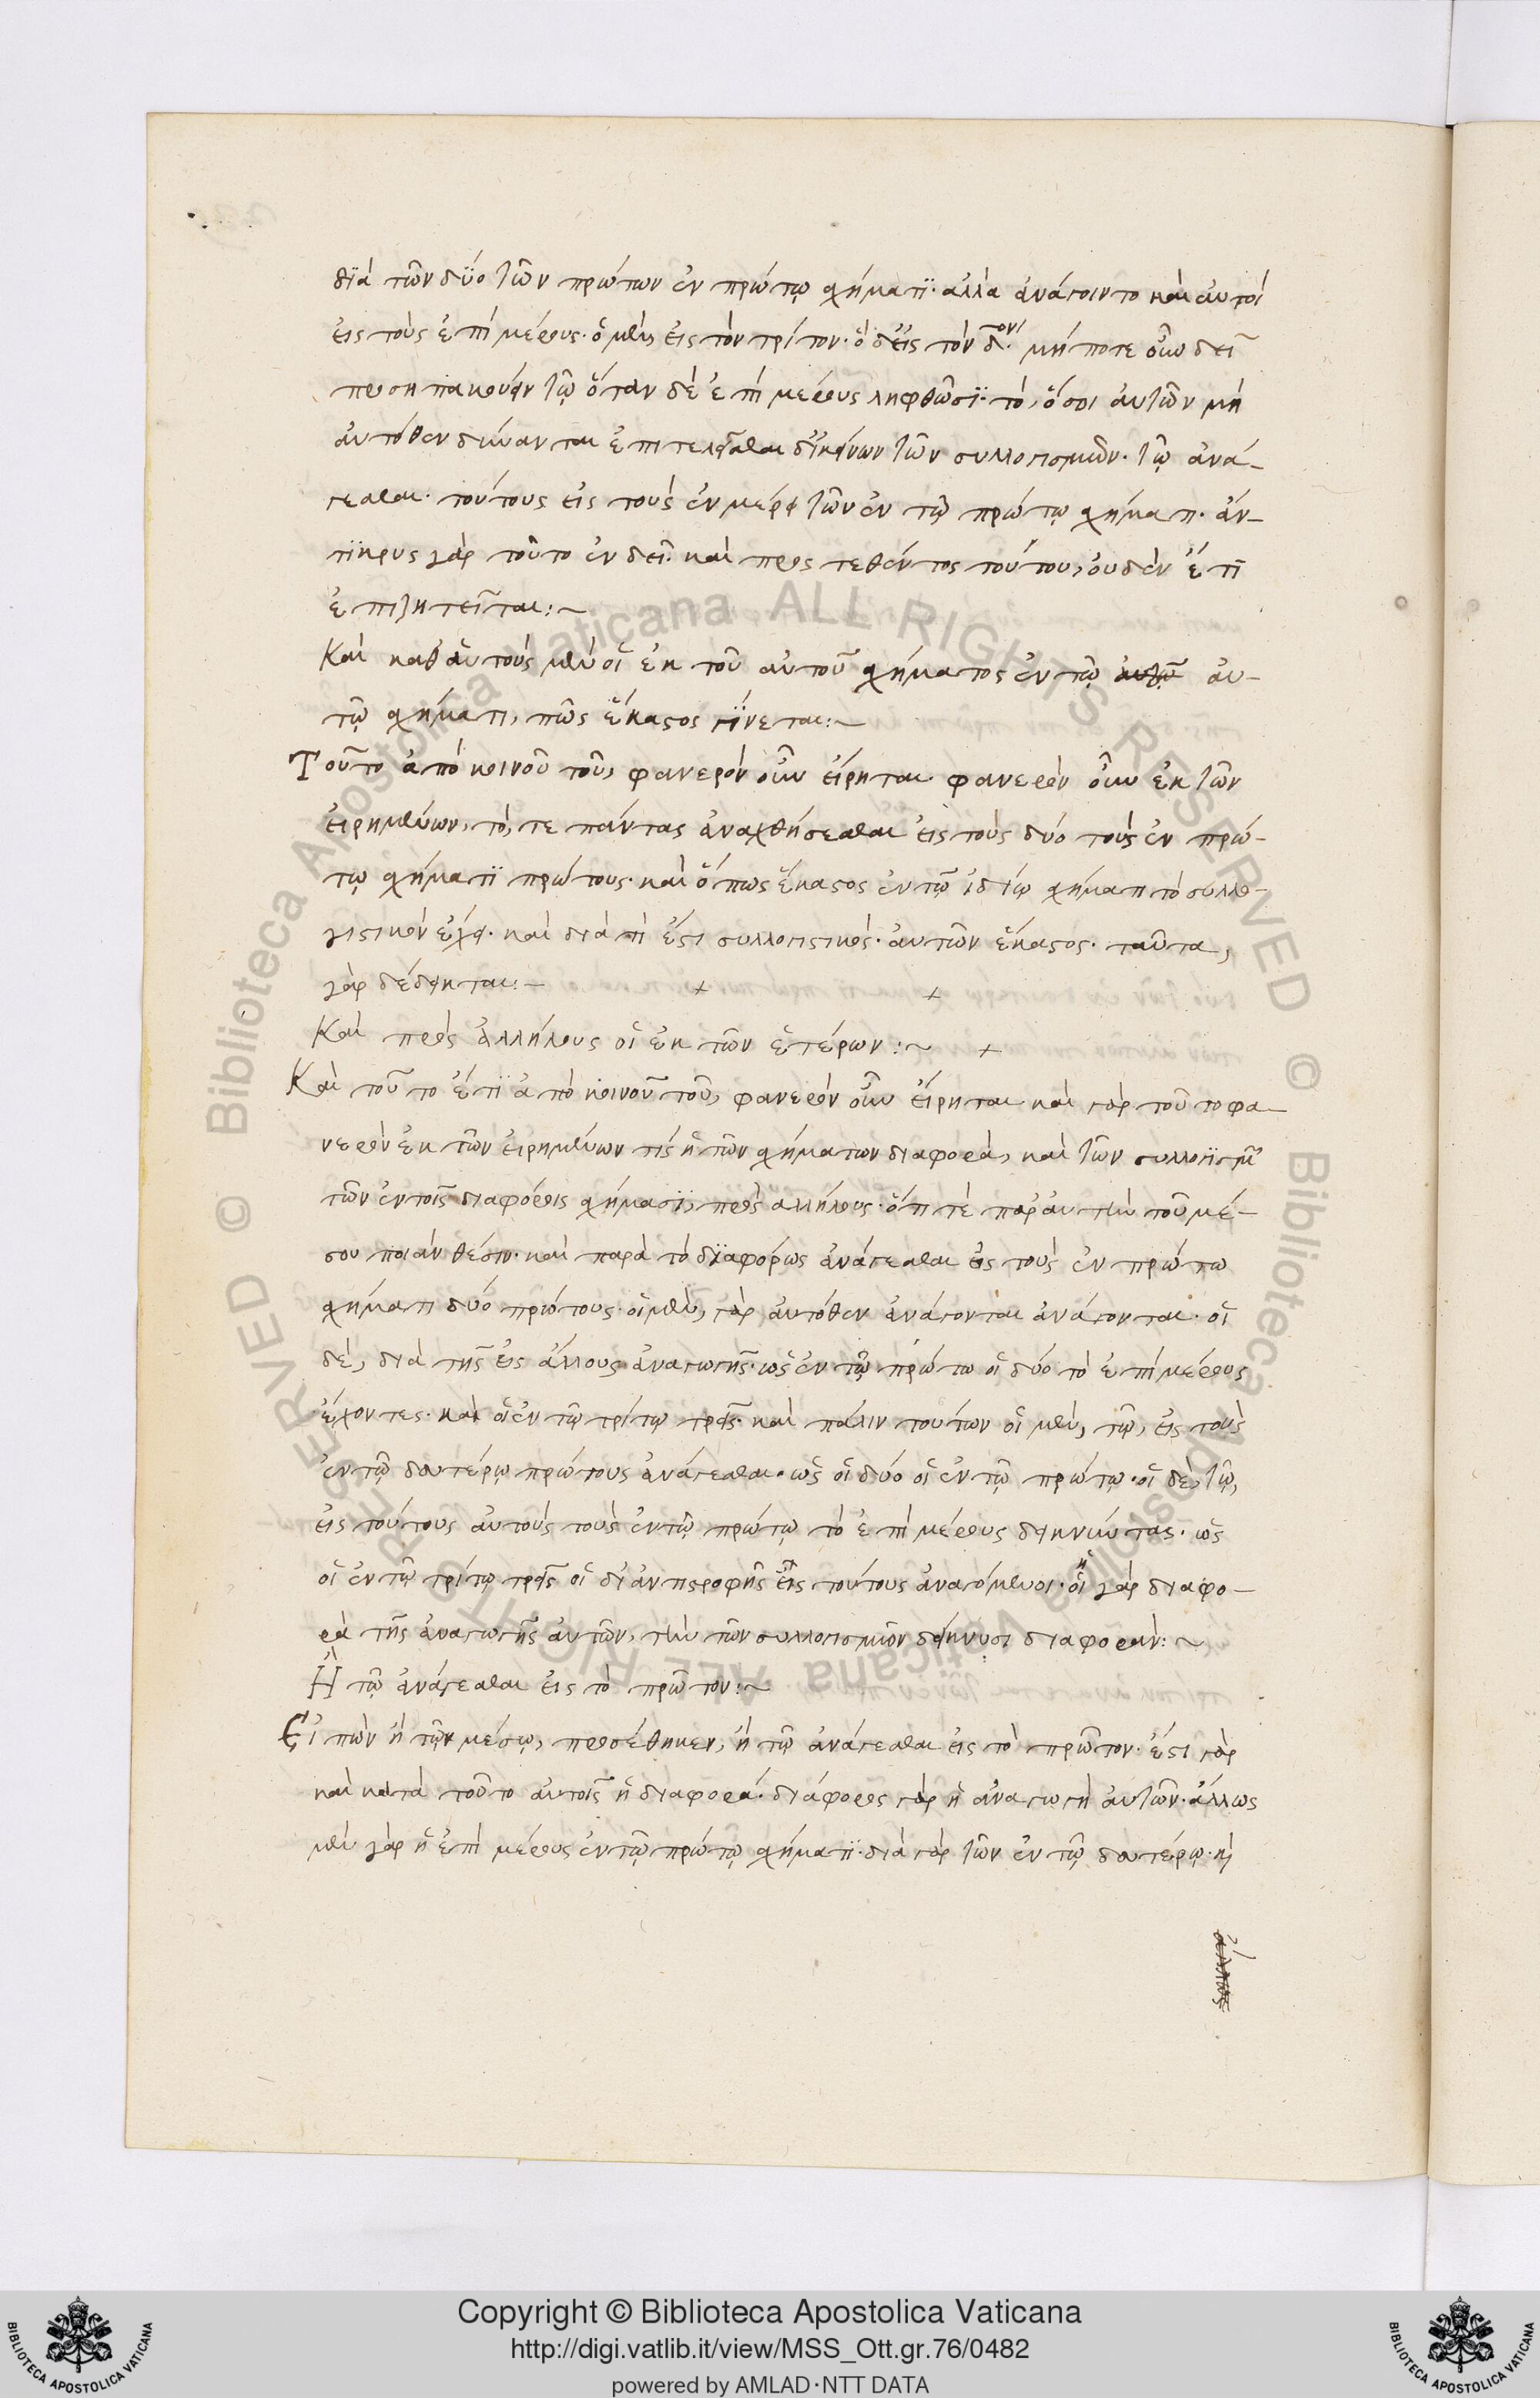 διὰ τῶν δύο τῶν πρώτων ἐν πρώτῳ σχήματι· ἀλλὰ ἀνάγοιντο καὶ αὐτοὶ
εἰς τοὺς ἐπὶ μέρους· ὁ μὲν, εἰς τὸν τρίτον· ὁ δ' εἰς τὸν δ´ον· μή ποτε οὖν δεῖ
προσυπακούειν τῷ ὅταν δὲ ἐπὶ μέρους ληφθῶσι· τὸ, ὅσοι αὐτῶν μὴ
αὐτόθεν δύνανται ἐπιτελεῖσθαι δι' ἐκείνων τῶν συλλογισμῶν· τῷ ἀνά-
γεσθαι· τούτους εἰς τοὺς ἐν μέρει τῶν ἐν τῷ πρώτῳ σχήματι· ἄν-
τικρυς γὰρ τοῦτο ἐνδεῖ· καὶ προστεθέντος τούτου, οὐδὲν ἔτι
ἐπιζητεῖται:~
Καὶ καθ' αὑτοὺς μὲν οἱ ἐκ τοῦ αὐτοῦ σχήματος ἐν τῷ αὐτῷ αὐ-
τῷ σχήματι, πῶς ἕκαστος γίνεται:~
Τοῦτο ἀπὸ κοινοῦ τοῦ, φανερὸν οὖν εἴρηται· φανερὸν οὖν ἐκ τῶν
εἰρημένων, τό, τε πάντας ἀναχθήσεσθαι εἰς τοὺς δύο τοὺς ἐν πρώ-
τῳ σχήματι πρώτους· καὶ ὅπως ἕκαστος ἐν τῷ ἰδίῳ σχήματι τὸ συλλο-
γιστικὸν ἔχει· καὶ διὰ τί ἐστι συλλογιστικὸς· αὐτῶν ἕκαστος· ταῦτα,
γὰρ δέδεικται:-
Καὶ πρὸς ἀλλήλους οἱ ἐκ τῶν ἑτέρων:~
Καὶ τοῦτο ἔτι ἀπὸ κοινοῦ τοῦ, φανερὸν οὖν εἴρηται· καὶ γὰρ τοῦτο φα-
νερὸν ἐκ τῶν εἰρημένων τίς ἡ τῶν σχημάτων διαφορὰ, καὶ τῶν συλλογισμῶν
τῶν ἐν τοῖς διαφόροις σχήμασι, πρὸς ἀλλήλους· ὅτι τὲ παρ' αὐτὴν τοῦ μέ-
σου ποιὰν θέσιν· καὶ παρὰ τὸ διαφόρως ἀνάγεσθαι εἰς τοὺς ἐν πρώτω
σχήματι δύο πρώτους· οἱ μὲν, γὰρ αὐτόθεν ἀνάγονται ἀνάγονται· οἱ
δὲ, διὰ τῆς εἰς ἄλλους ἀναγωγῆς· ὡς ἐν τῷ πρώτω οἱ δύο τὸ ἐπὶ μέρους
ἔχοντες· καὶ οἱ ἐν τῷ τρίτῳ τρεῖς· καὶ πάλιν τούτων οἱ μὲν, τῷ, εἰς τοὺς
ἐν τῷ δευτέρῳ πρώτους ἀνάγεσθαι· ὡς οἱ δύο οἱ ἐν τῷ πρώτῳ· οἱ δὲ, τῷ,
εἰς τούτους αὐτοὺς τοὺς ἐν τῷ πρώτῳ τὸ ἐπὶ μέρους δεικνύντας· ὡς
οἱ ἐν τῷ τρίτῳ τρεῖς οἱ δι' ἀντιστροφῆς εἰς τούτους ἀναγόμενοι· ἡ γὰρ διαφο-
ρὰ τῆς ἀναγωγῆς αὐτῶν, τὴν τῶν συλλογισμῶν δείκνυσι διαφοράν:~
Ἢ τῷ ἀνάγεσθαι εἰς τὸ πρῶτον:~
Εἰπὼν ἢ τῷ μέσῳ, προσέθηκεν, ἢ τῷ ἀνάγεσθαι εἰς τὸ πρῶτον· ἔστι γὰρ
καὶ κατὰ τοῦτο αὐτοῖς ἡ διαφορά· διάφορος γὰρ ἡ ἀναγωγὴ αὐτῶν· ἄλλως
μὲν γὰρ ἡ ἐπὶ μέρους ἐν τῷ πρώτῳ σχήματι· διὰ γὰρ τῶν ἐν τῷ δευτέρῳ· καὶ
ἄλλως
Copyright © Biblioteca Apostolica Vaticana
http://digi.vatlib.it/view/MSS_Ott.gr.76/0482
powered by AMLAD·NTT DATA